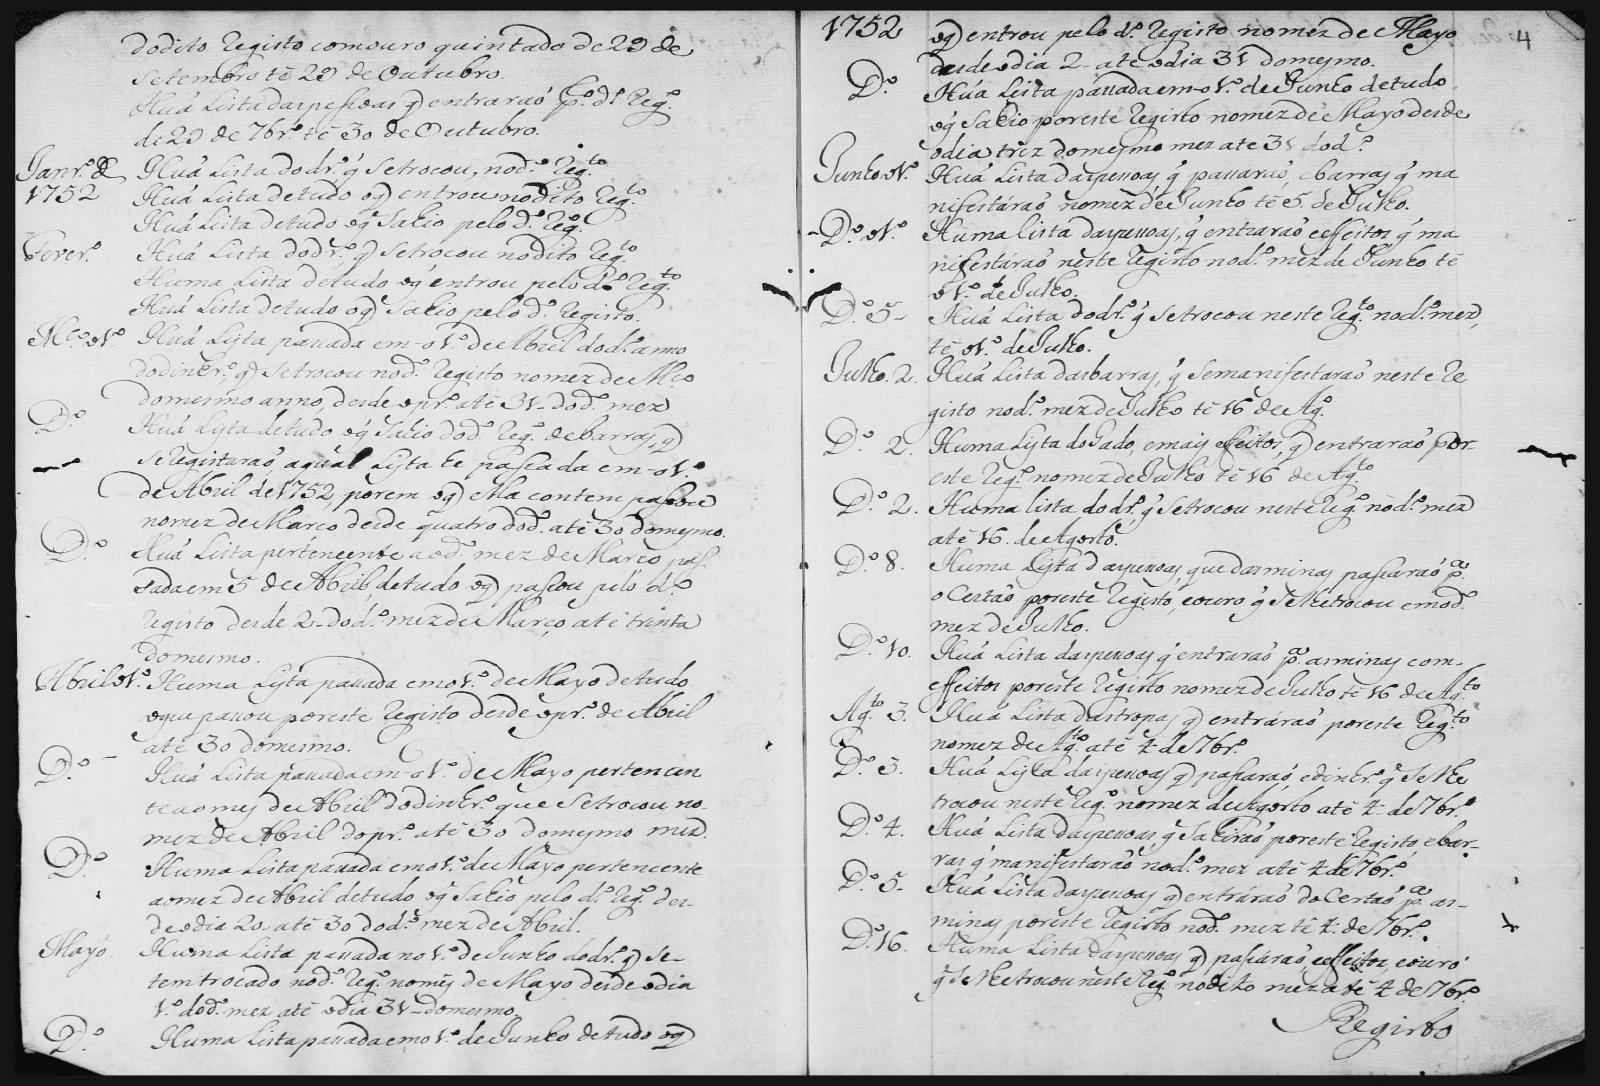 dodito Registo comouro quintado de 29 de
Setembro té 29 de Outubro.
Huá Lista das pessoas q̃ entraraó p.º d.º Reg.º
de 29 de 7br.º té 30 de Outubro.
Janr.º de Huá Lista dodr.º q̃ Setrocou, nod.º Reg.to
1752 Huá Lista detudo oq̃ entrou nodito Reg.to
Huá Lista detudo oq̃ Sahio pelo d.º Reg.º
Fever.º Huá Lista dodr.º q̃ Setrocou nodito Reg.to
Huma Lista detudo oq̃ entrou pelo d.º Reg.to
Huá Lista detudo oq̃ Sahio pelo d.º Registo.
M.ço 1.º Huá Lysta passada em o 1.º de Abril dod.º anno
dodinhr.º, q̃ Setrocou nod.º Registo nomez de M.ço
domesmo anno, desde opr.º até 31 dod.º mez
D.º Huá Lysta detudo oq̃ Sahio dod.º Reg.º debarras, q̃
Seregistaraó, aqual Lysta he passada em o 1.º
de Abril de 1752, porem oq̃ ella contem passou
nomez de Março desde quatro dod.º até 30 domesmo.
D.º Huá Lista pertencente aod.º mez de Março pas
sada em 5 de Abril, detudo oq̃ passou pelo d.º
Registo desde 2 dod.º mez de Março até trinta
domesmo.
Abril 1.º Huma Lysta passada em o 1.º de Mayo detudo
oque passou poreste Registo desde opr.º de Abril
até 30 domesmo.
D.º Huá Lista passada em o 1.º de Mayo pertencen
te aomes de Abril dodinhr.º que Setrocou no
mez de Abril dopr.º até 30 domesmo mez.
D.º Huma Lista passada em o 1.º de Mayo pertencente
aomez de Abril detudo oq̃ Sahio pelo d.º Reg.º des
de odia 20 até 30 dod.º mez de Abril.
Mayo Huma Lista passada no 1.º de Junho dodr.º q̃ se
tem trocado nod.º Reg.º nomes de Mayo desde odia
1.º dod.º mez até odia 31 domesmo.
D.º Huma Lista passada em o 1.º de Junho detudo oq̃
4
1752 oq̃ entrou pelo d.º Registo nomez de Mayo
desde odia 2 até odia 31 domesmo.
D.º Huá Lista passada em o 1.º de Junho detudo
oq̃ Sahio poreste Registo nomez de Mayo desde
odia trez domesmo mez até 31 dod.º
Junho 1.º Huá Lista das pessoas q̃ passaraó, ebarras q̃ ma
nifestáraó nomez de Junho té 5 de Julho.
D.º 1.º Huma lista das pessoas, q̃ entraraó eeffeitos q̃ ma
nifestáraó neste Registo nod.º mez de Junho té
o 1.º de Julho.
D.º 5 Huá Lista dodr.º q̃ Setrocou neste Reg.to nod.º mez,
té o 1.º de Julho.
Julho. 2. Huá Lista das barras, q̃ Semanifestaraó neste Re
gisto nod.º mez de Julho té 16 de Ag.º
D.º 2. Huma Lysta do Gado, emais effeitos, q̃ entraraó por
este Reg.º nomez de Julho té 16 de Ag.to
D.º 2. Huma lista dodr.º q̃ Setrocou neste Reg.º nod.º mez
até 16 de Agosto.
D.º 8. Huma Lysta das pessoas, que das minas passaraó p.ª
o Certaó poreste Registo, eouro q̃ Selhetrocou emod.º
mez de Julho.
D.º 10. Huá Lista das pessoas q̃ entraraó p.ª as minas com
effeitos poreste Registo nomez de Julho té 16 de Ag.to
Ag.to 3. Huá Lista das tropas q̃ entráraó poreste Reg.to
nomez de Ag.to até 4 de 7br.º
D.º 3. Huá Lysta das pessoas q̃ passaraó, edinhr.º q̃ Selhe
trocou neste Reg.º nomez de Agosto até 4 de 7br.º
D.º 4. Huá Lista das pessoas, q̃ Sahiraó poreste Registo, ebar
ras q̃ manifestaraó nod.º mez até 4 de 7br.º
D.º 5 Huá Lista das pessoas q̃ entráraó do Certaó p.ª as
minas poreste Registo nod.º mez té 4 de 7br.º
D.º 16. Huma Lista das pessoas q̃ passáraó, eeffeitos, eouro
q̃ Selhetrocou neste Reg.º nodito mez até 4 de 7br.º
Registo